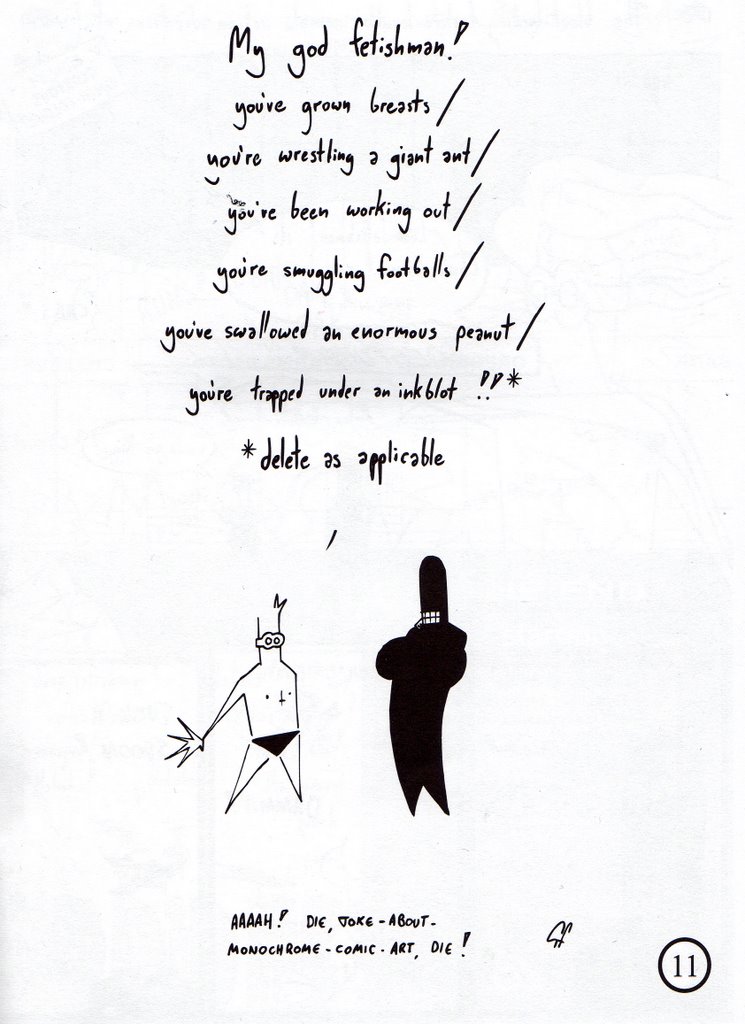 My god fetishman!
you've grown breasts /
you're wrestling a giant ant /
you've been working out /
you're smuggling footballs /
you've swallowed an enormous peanut /
you're trapped under an inkblot !!*
*delete as applicable
AAAAH! DIE, JOKE-ABOUT-
MONOCHROME-COMIC-ART, DIE!
11